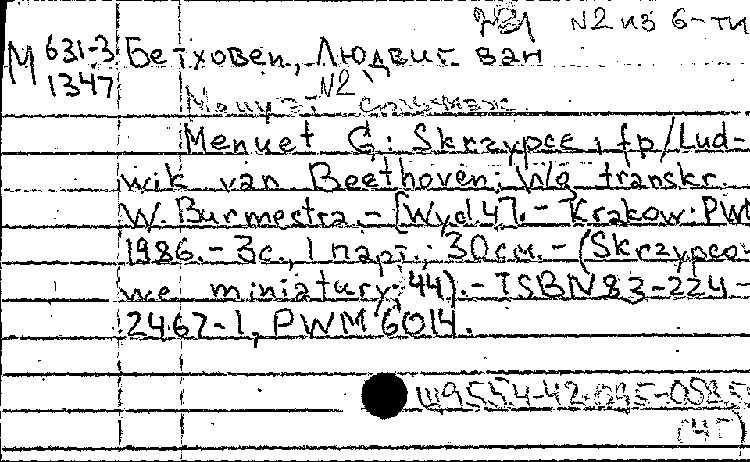 N2 из 6-ти
М 631-3 Бетховен, Людвиг ван
1347
N2
Менуэт соль маж
Menuet G: Skrzypce i fp/Lud-
wik van Beethoven; Wg transkr.
W. Burmestra.-[Wyd.4].- Krakow: PWM
1986.- 3с., 1 парт.; 30см.-(Skrzypco-
we miniatury; 44).- ISBN 83-224-
2467-1, PWM 6014.
Ш9554-42.095-0585
(4Г)